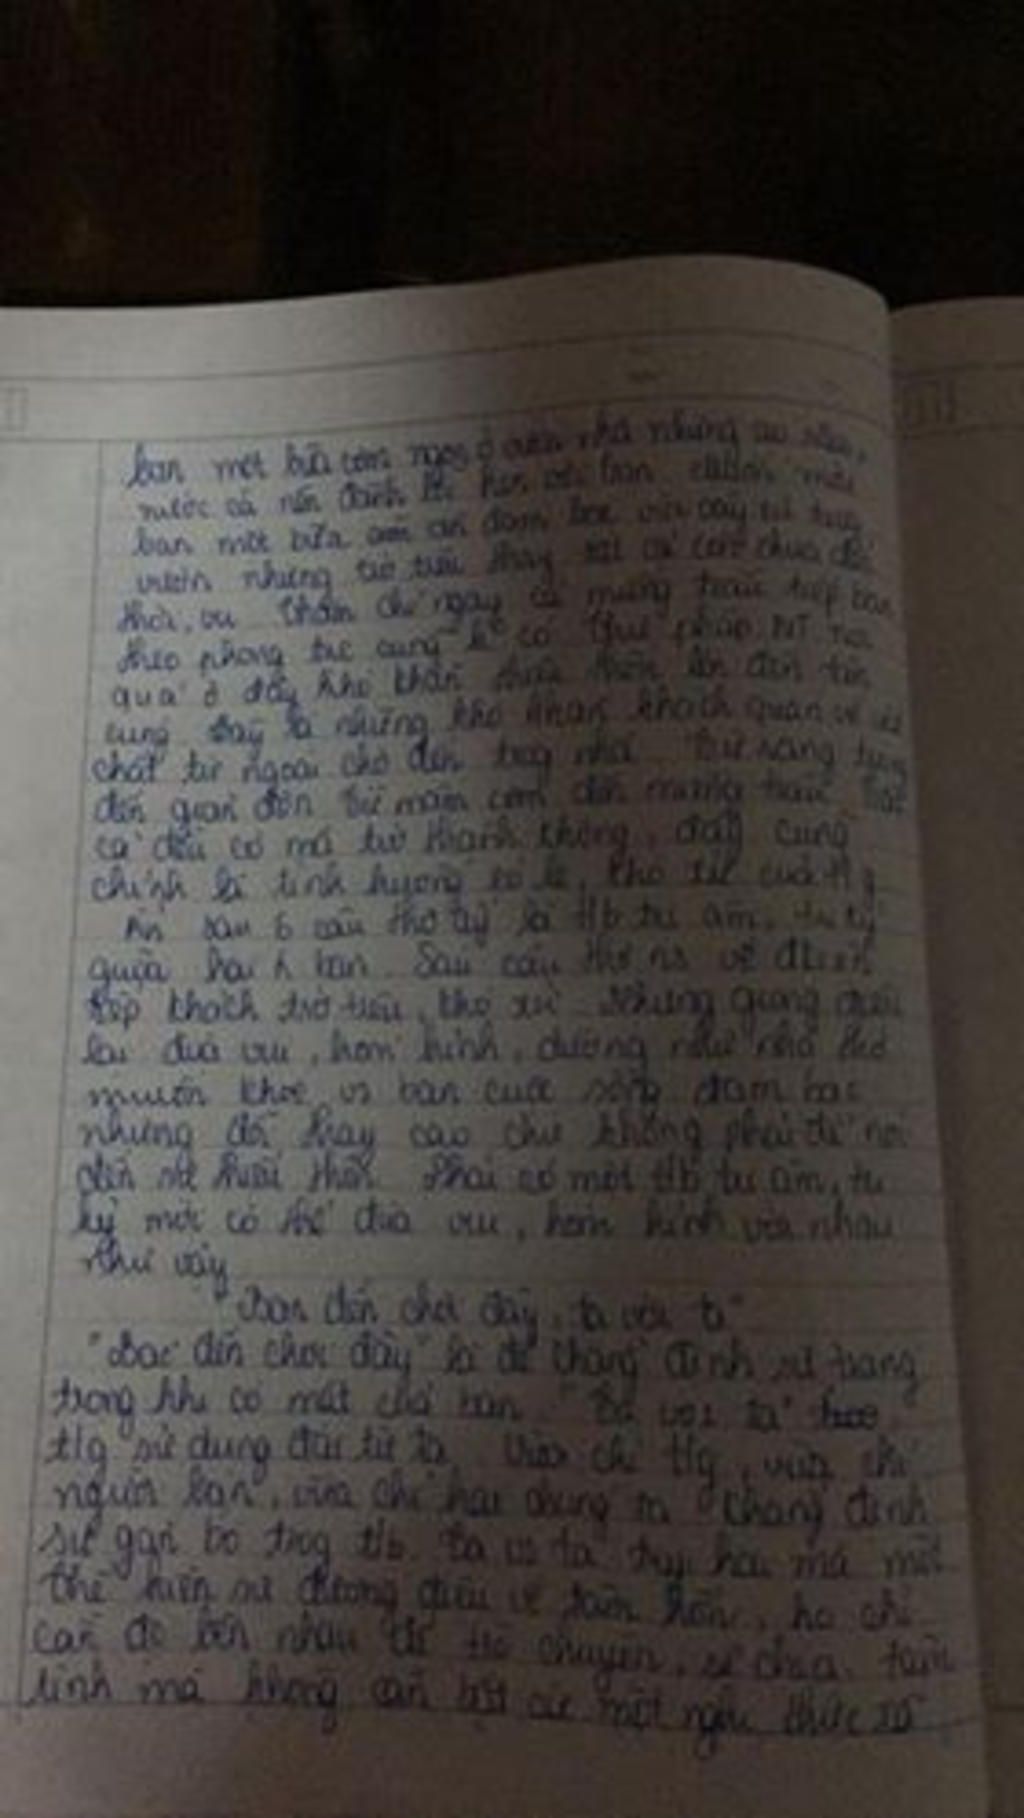 bạn một bữa cơm ngon ở vườn nhà nhưng ao sâu,
nước cả nên đành lỗi hẹn với bạn muốn mời
bạn một bữa cơm đạm bạc với cây trái trong
vườn nhưng trớ trêu thay tất cả còn chưa đến
thời vụ. Thậm chí ngay cả miếng trầu tiếp bạn
theo phong tục cũng k có
quá ở đây khó khăn thiếu thốn lên đến tận
cùng đây là những khó khăn khách quan về vật
chất từ ngoài chợ đến trog nhà. Từ sang trọng
đến giản đơn từ mâm cơm đến miếng trầu. Tất
cả đều có mà trở thành không, đây cũng
chính là tình huống éo le, khó xử của t/g
Ẩn sau 6 câu thơ ấy là t/b tri âm, tri kỷ
giữa hai bạn. Sau câu thơ nói về
tiếp khách trớ trêu, khó xử. Nhưng giọng điệu
lại đùa vui, hóm hỉnh, dường như nhà thơ
muốn khoe vs bạn cuộc sống đạm bạc
nhưng đó thay cao chứ không phải để nói
đến sự thiếu thốn. Phải có một t/b tri âm, tri
kỷ mới có thể đùa vui, hóm hỉnh với nhau
như vậy
"Bác đến chơi đây, ta với ta"
"Bác đến chơi đây" là để khẳng định sự trang
trọng khi có mặt của bạn. "Ta với ta"
t/g sử dụng đại từ ta. Vừa chỉ t/g, vừa chỉ
người bạn, vừa chỉ hai chúng ta. Khẳng định
sự gắn bó trog t/b. Ta vs ta tuy hai mà một
thể hiện sự đương điệu về tâm hồn, họ chỉ
cần đó bên nhau để trò chuyện, sẻ chia, tâm
tình mà không cần bất cứ một nghi thức xã